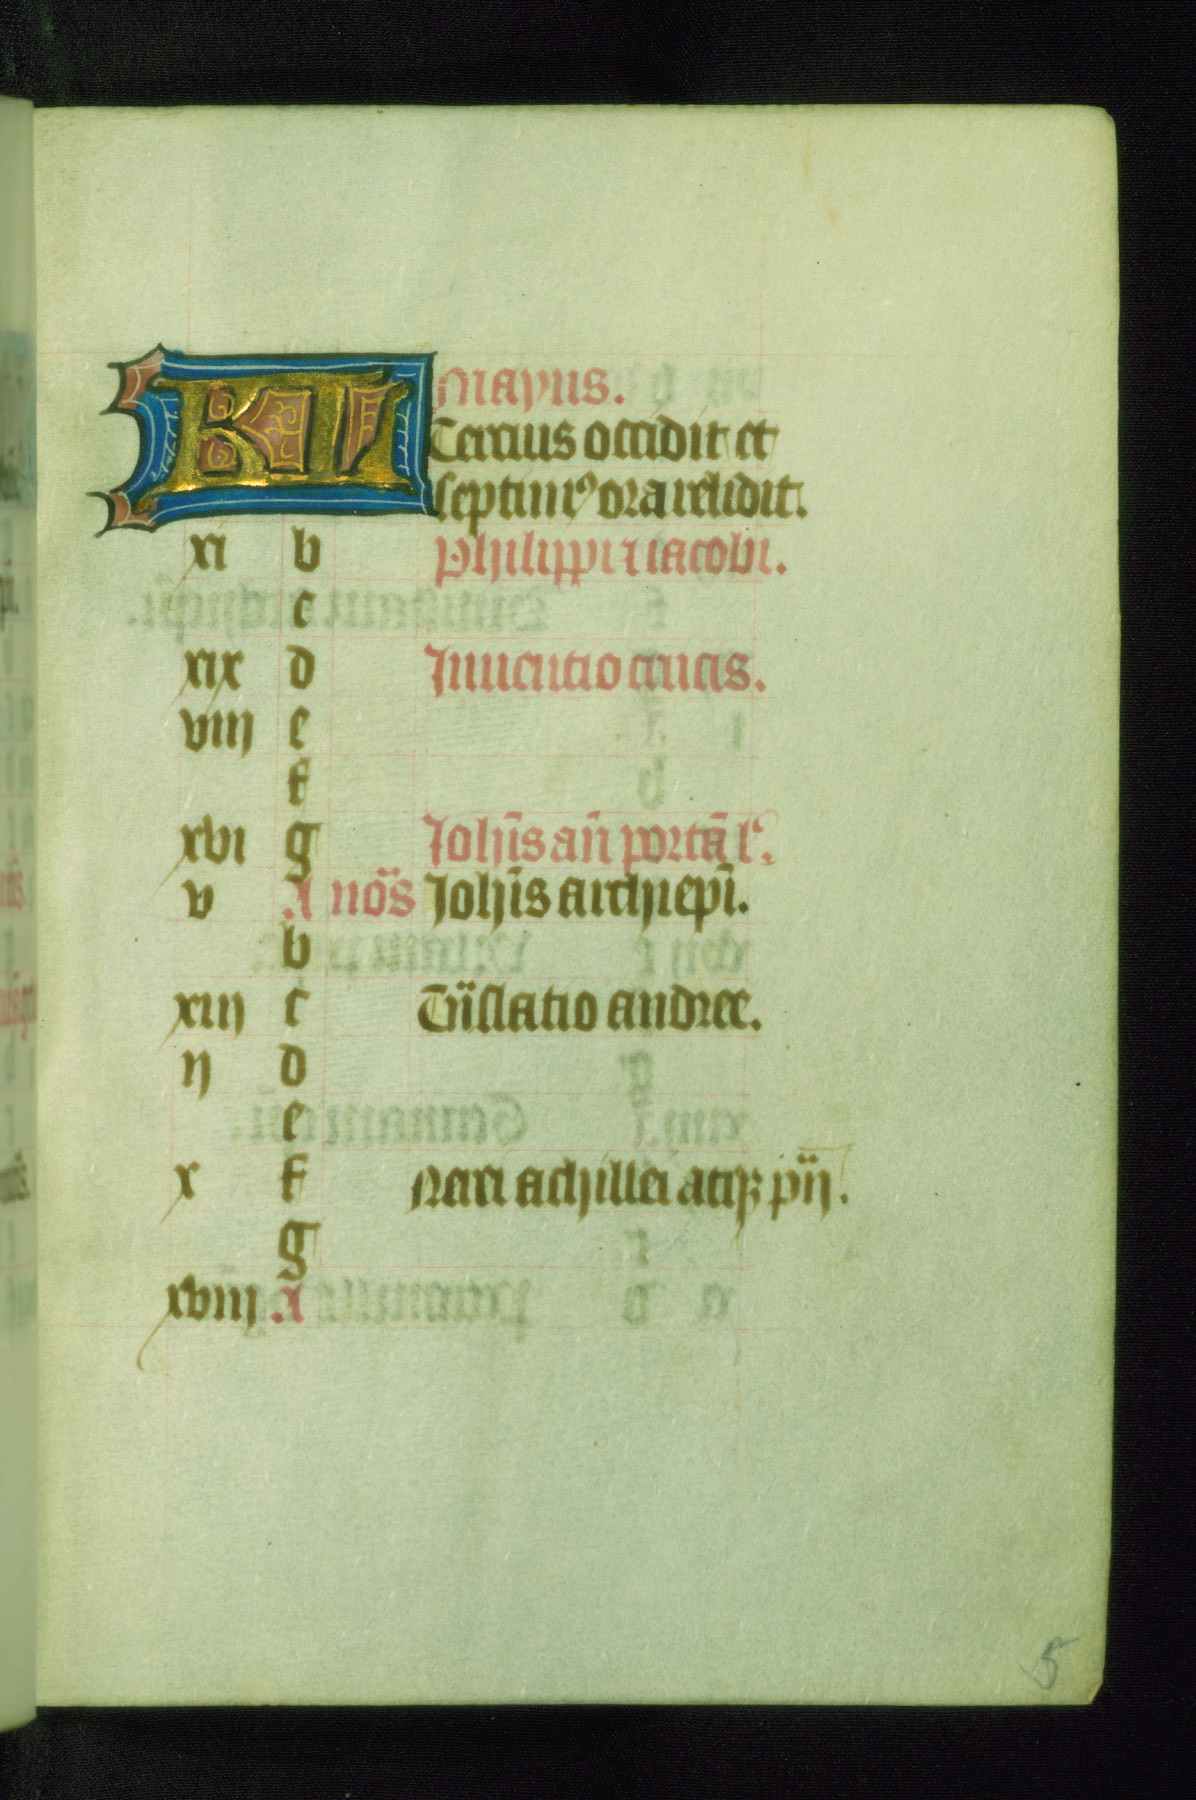 KL mayus.
Tercius occidit et
septim⁹ ora relidit.
xi b Philippi ⁊ iacobi.
c
xix d Inuentio crucis.
viij e
f
xvi g Joħis an̄ portā l'.
v A nōs Joħis archiep̄i.
b
xiij c Trⁱslatio andree.
ij d
e
x f Nerei achillei atqꝫ
g
xviij A
5